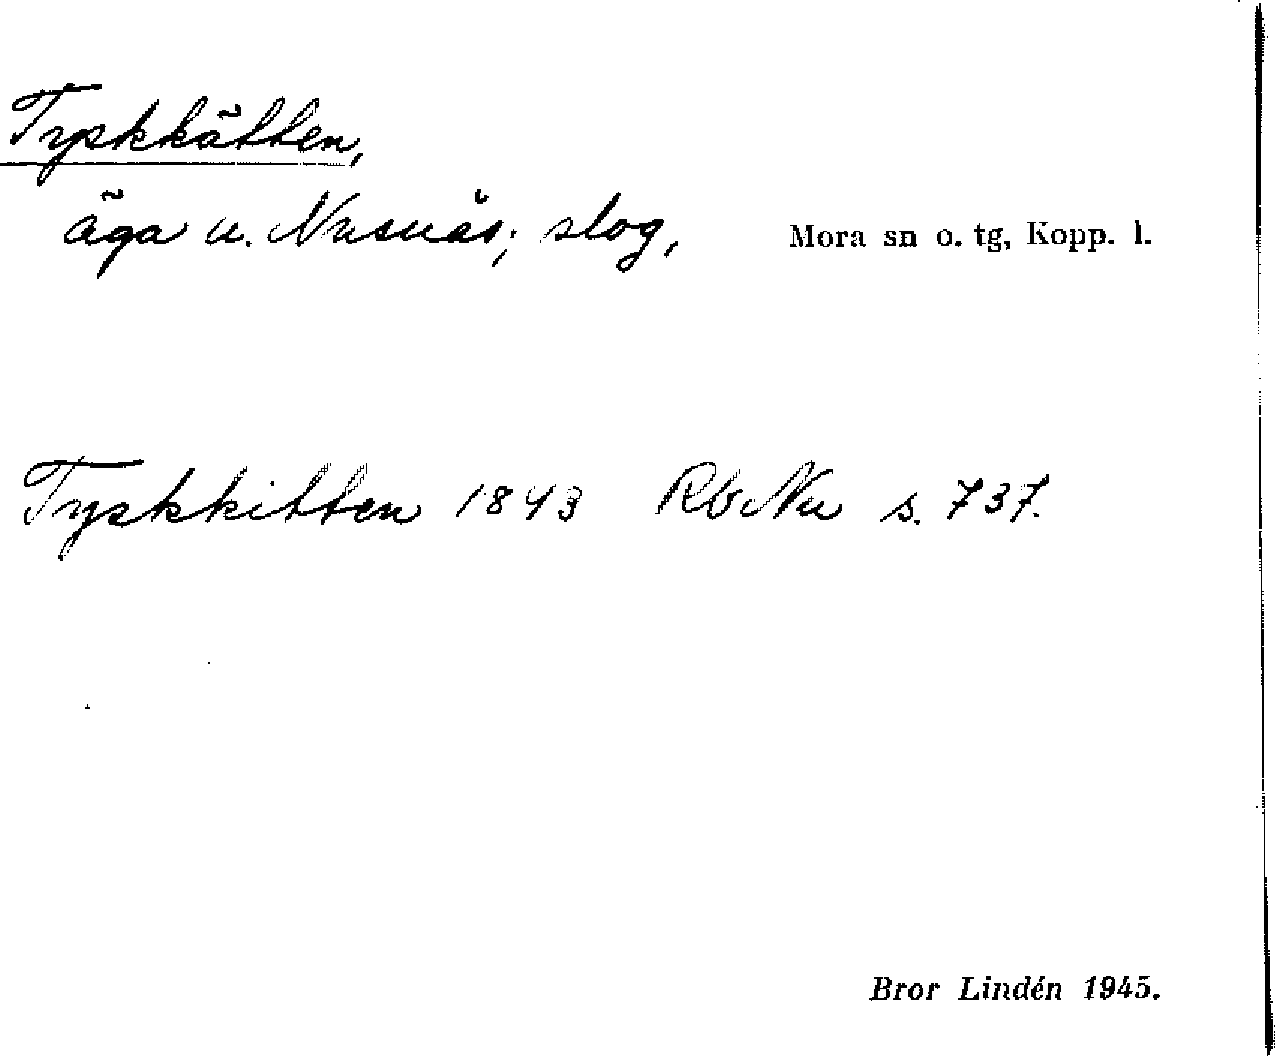 Tyskkätten,
äga u. Nusnäs; slog, Mora sn o. tg, Kopp. l.
Tyskkitten 1843 Rb Nu s. 737.
Bror Lindén 1945.